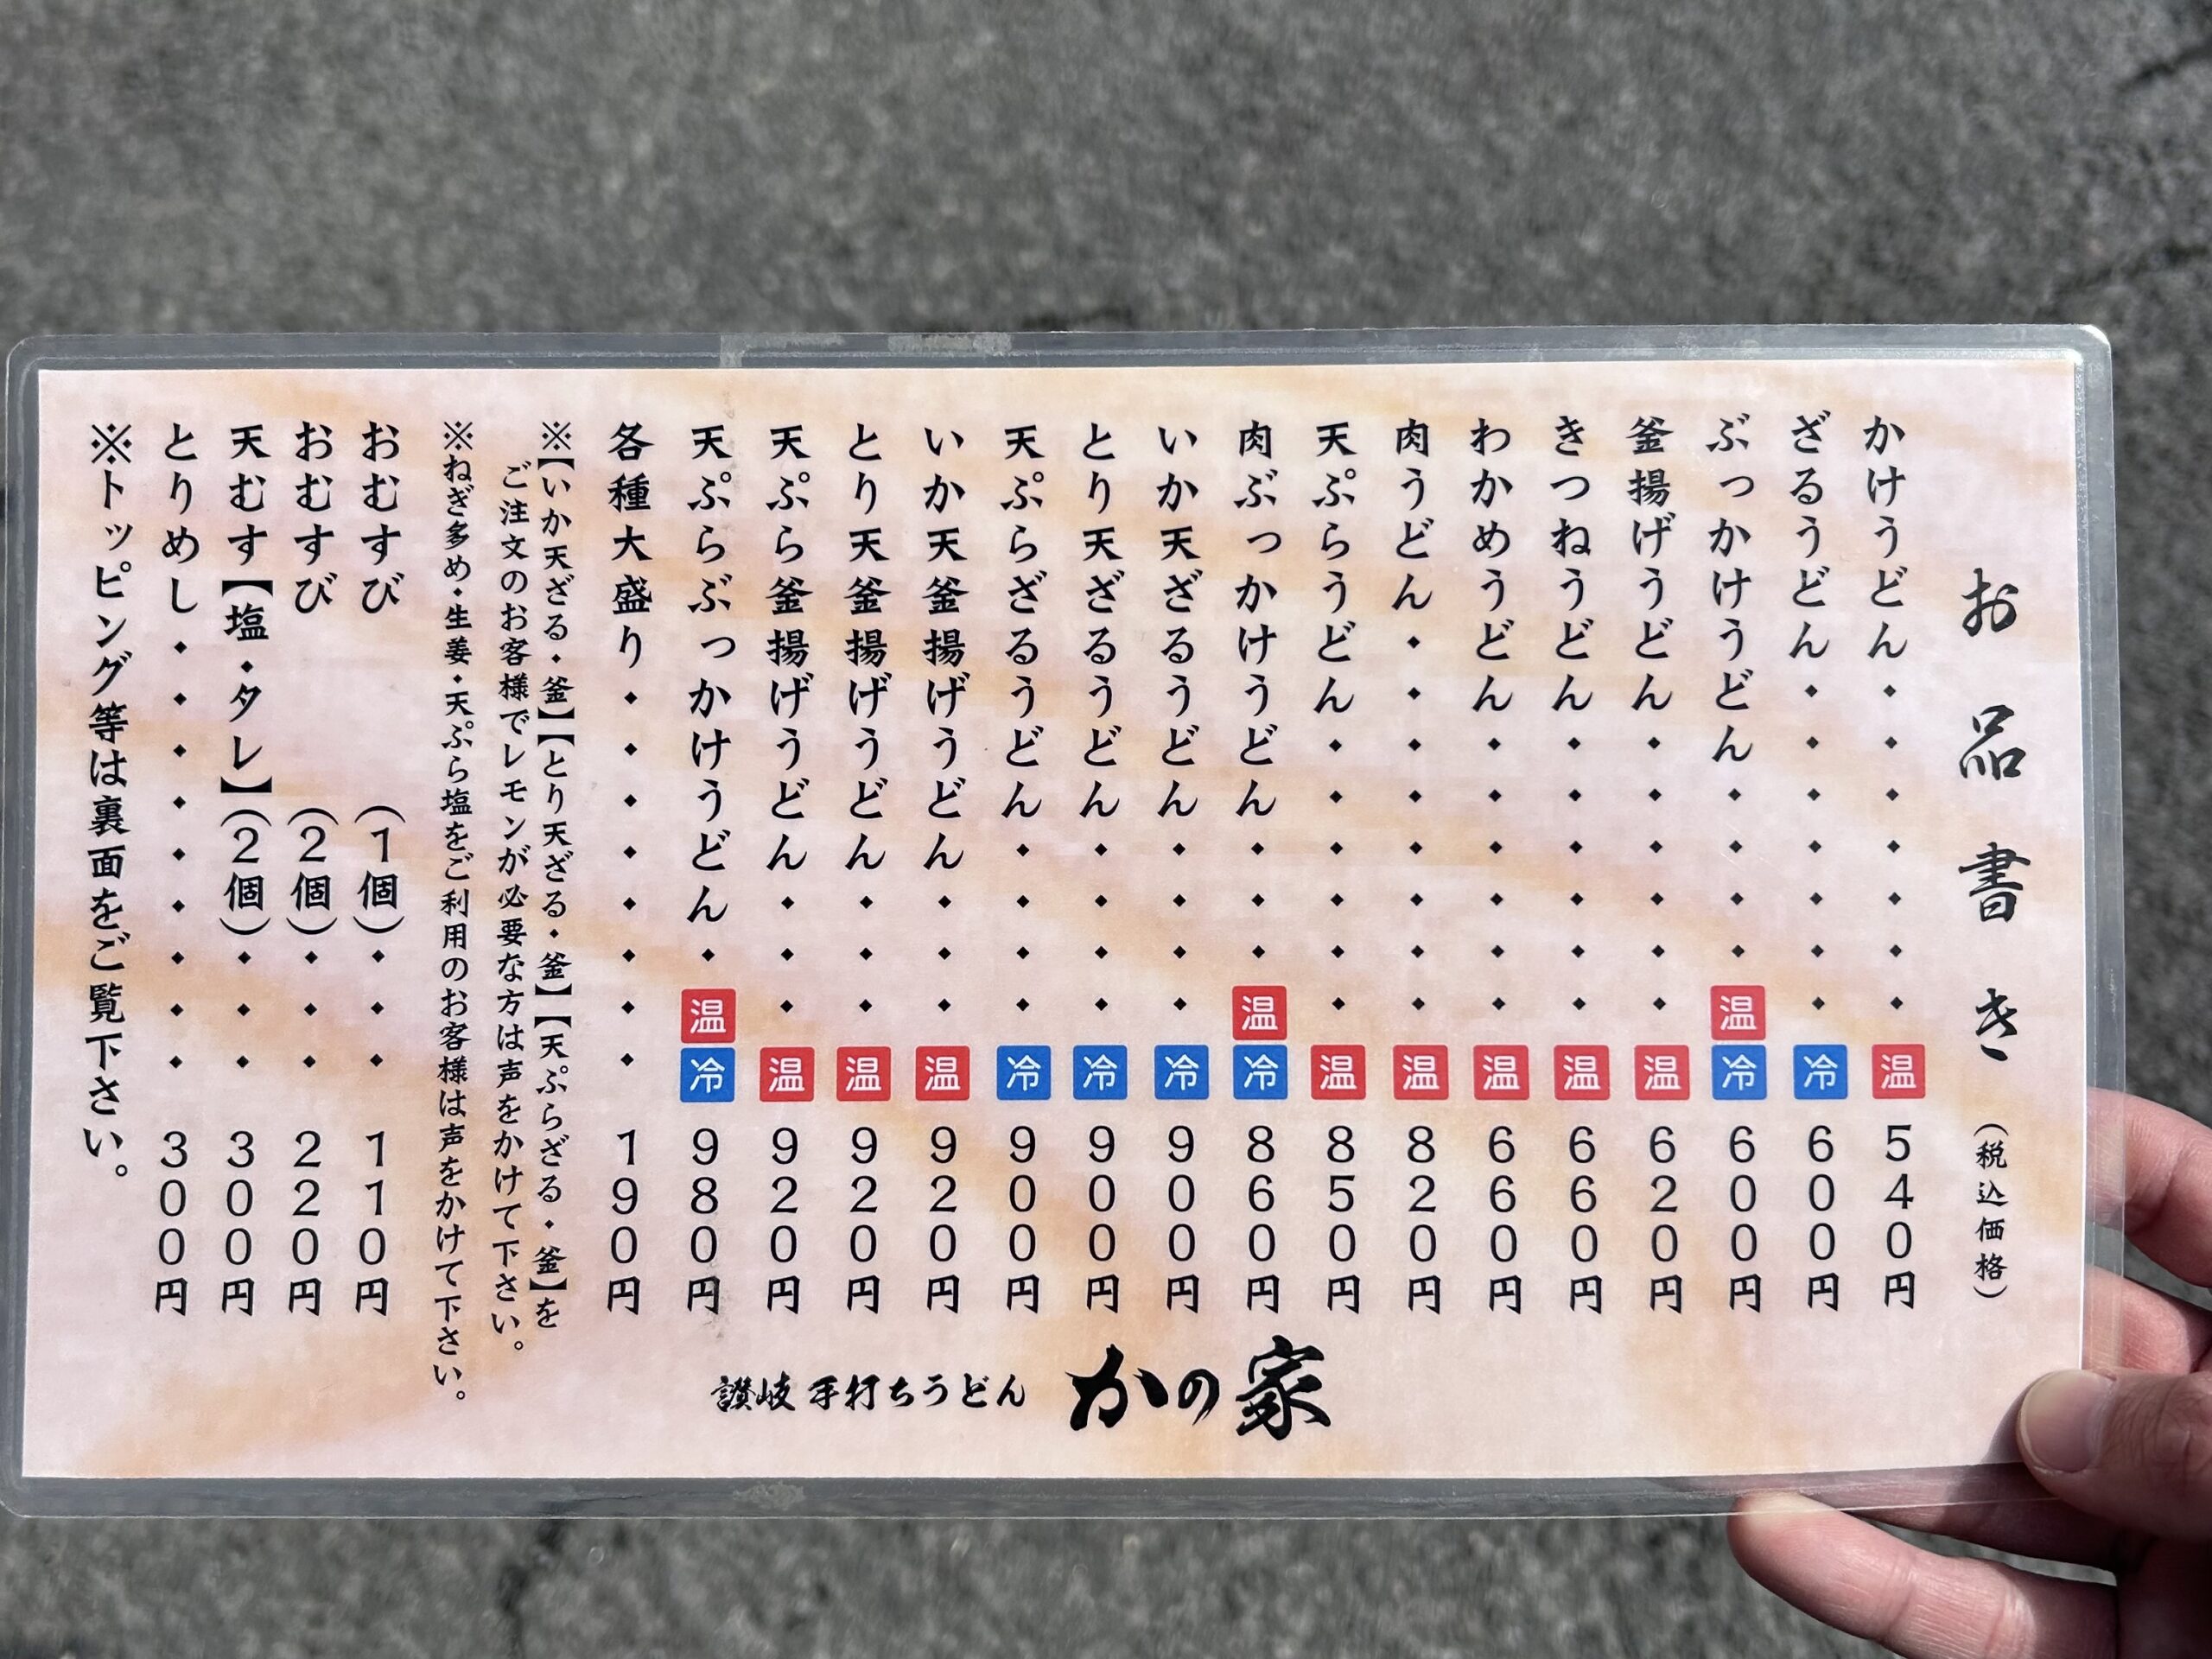 お品書き（税込価格）
かけうどん・・・・・・・温 540円
ざるうどん・・・・・・・冷 600円
ぶっかけうどん・・・・・温冷 600円
釜揚げうどん・・・・・・温 620円
きつねうどん・・・・・・温 660円
わかめうどん・・・・・・温 660円
肉うどん・・・・・・・・温 820円
天ぷらうどん・・・・・・温 850円
肉ぶっかけうどん・・・温冷 860円
いか天ざるうどん・・・・冷 900円
とり天ざるうどん・・・・冷 900円
天ぷらざるうどん・・・・冷 900円
いか天釜揚げうどん・・・温 920円
とり天釜揚げうどん・・・温 920円
天ぷら釜揚げうどん・・・温 920円
天ぷらぶっかけうどん・温冷 980円
各種大盛り・・・・・・・・190円
※【いか天ざる・釜】【とり天ざる・釜】【天ぷらざる・釜】を
ご注文のお客様でレモンが必要な方は声をかけて下さい。
※ねぎ多め・生姜・天ぷら塩をご利用のお客様は声をかけて下さい。
おむすび （1個）・・・110円
おむすび （2個）・・・220円
天むす【塩・タレ】（2個）・・・300円
とりめし・・・・・・・・・300円
※トッピング等は裏面をご覧下さい。
讃岐 手打ちうどん かの家